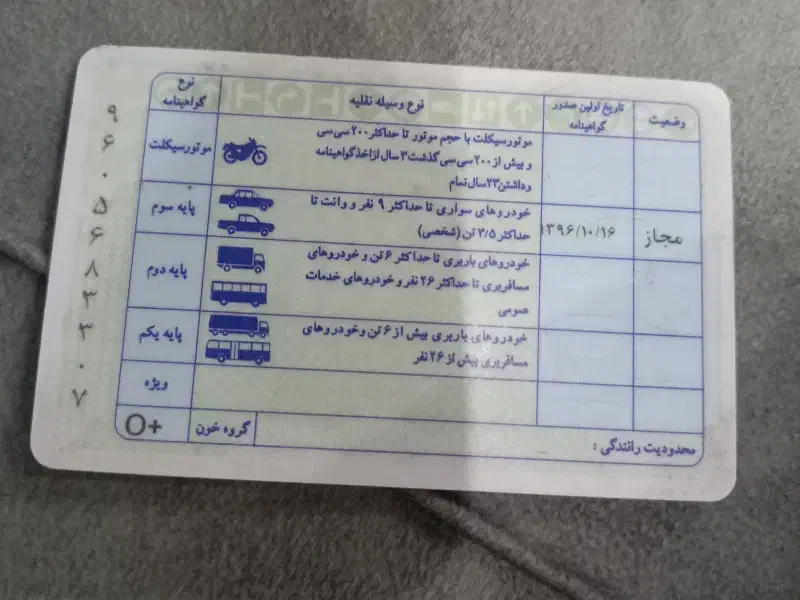 وضعیت
تاریخ اولین صدور گواهینامه
نوع وسیله نقلیه
نوع گواهینامه
موتورسیکلت با حجم موتور تا حداکثر ۲۰۰ سی سی
و بیش از ۲۰۰ سی سی گذشت ۳ سال از اخذ گواهینامه
و داشتن ۲۳ سال تمام
موتورسیکلت
مجاز
۱۳۹۶/۱۰/۱۶
خودروهای سواری تا حداکثر ۹ نفر و وانت تا
حداکثر ۳/۵ تن (شخصی)
پایه سوم
خودروهای باربری تا حداکثر ۶ تن و خودروهای
مسافربری تا حداکثر ۲۶ نفر و خودروهای خدمات
عمومی
پایه دوم
خودروهای باربری بیش از ۶ تن و خودروهای
مسافربری بیش از ۲۶ نفر
پایه یکم
ویژه
محدودیت رانندگی :
گروه خون
O+
۹۶۰۵۶۸۳۳۰۷